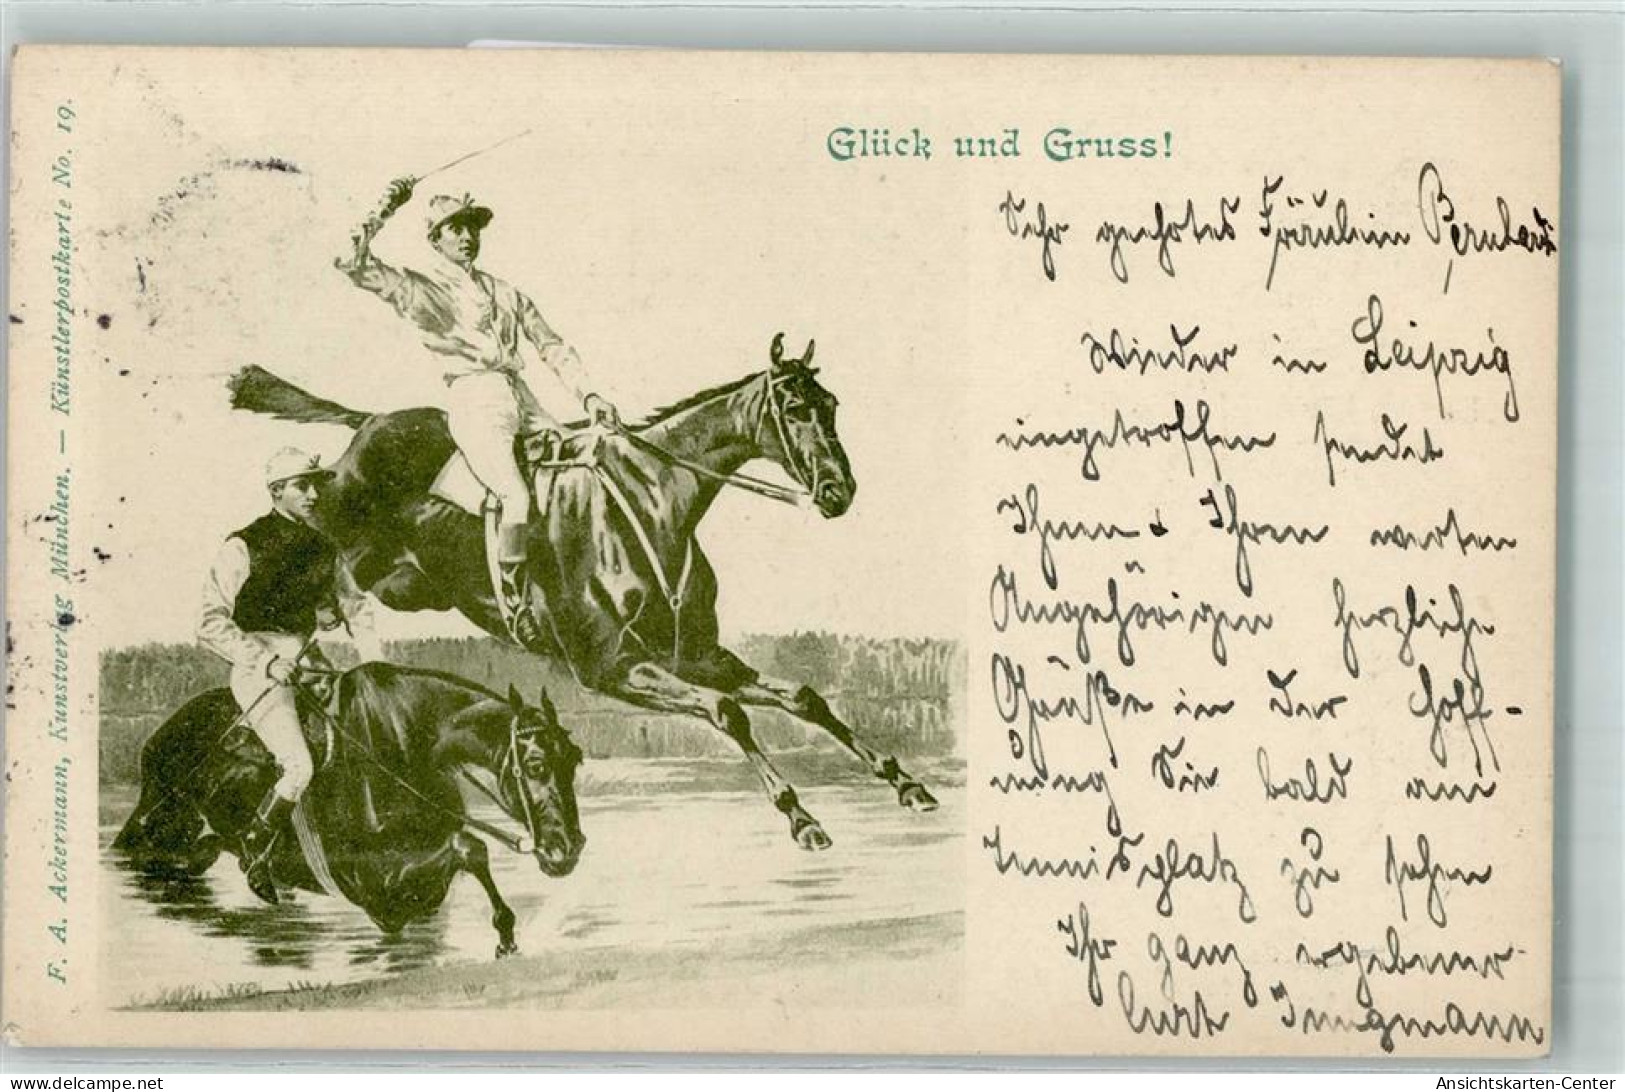 F. A. Ackermann, Kunstverlag München. — Künstlerpostkarte No. 19.
Glück und Gruss!
Sehr geehrtes Fräulein Bernhard
Wieder in Leipzig
eingetroffen sendet
Ihnen & Ihren werten
Angehörigen herzliche
Grüße in der Hoff-
nung Sie bald am
Tennisplatz zu sehen
Ihr ganz ergebener
Curt Jungmann
Ansichtskarten-Center